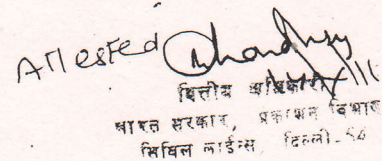 Attested
वित्तीय अधिकारी
भारत सरकार, प्रकाशन विभाग
सिविल लाईन्स, दिल्ली-54